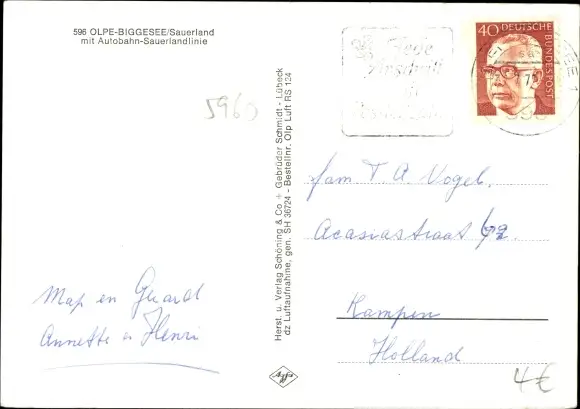 596 OLPE-BIGGESEE/Sauerland
mit Autobahn-Sauerlandlinie
5960
Herst. u. Verlag Schöning & Co. + Gebrüder Schmidt - Lübeck
dz Luftaufnahme, gen. SH 36724 - Bestellnr. Olp Luft RS 124
Agfa
40 DEUTSCHE
BUNDESPOST
fam T. A. Vogel.
Acasiastraat
Kampen
Holland
Map en Gerard
Annette en Henri
4€